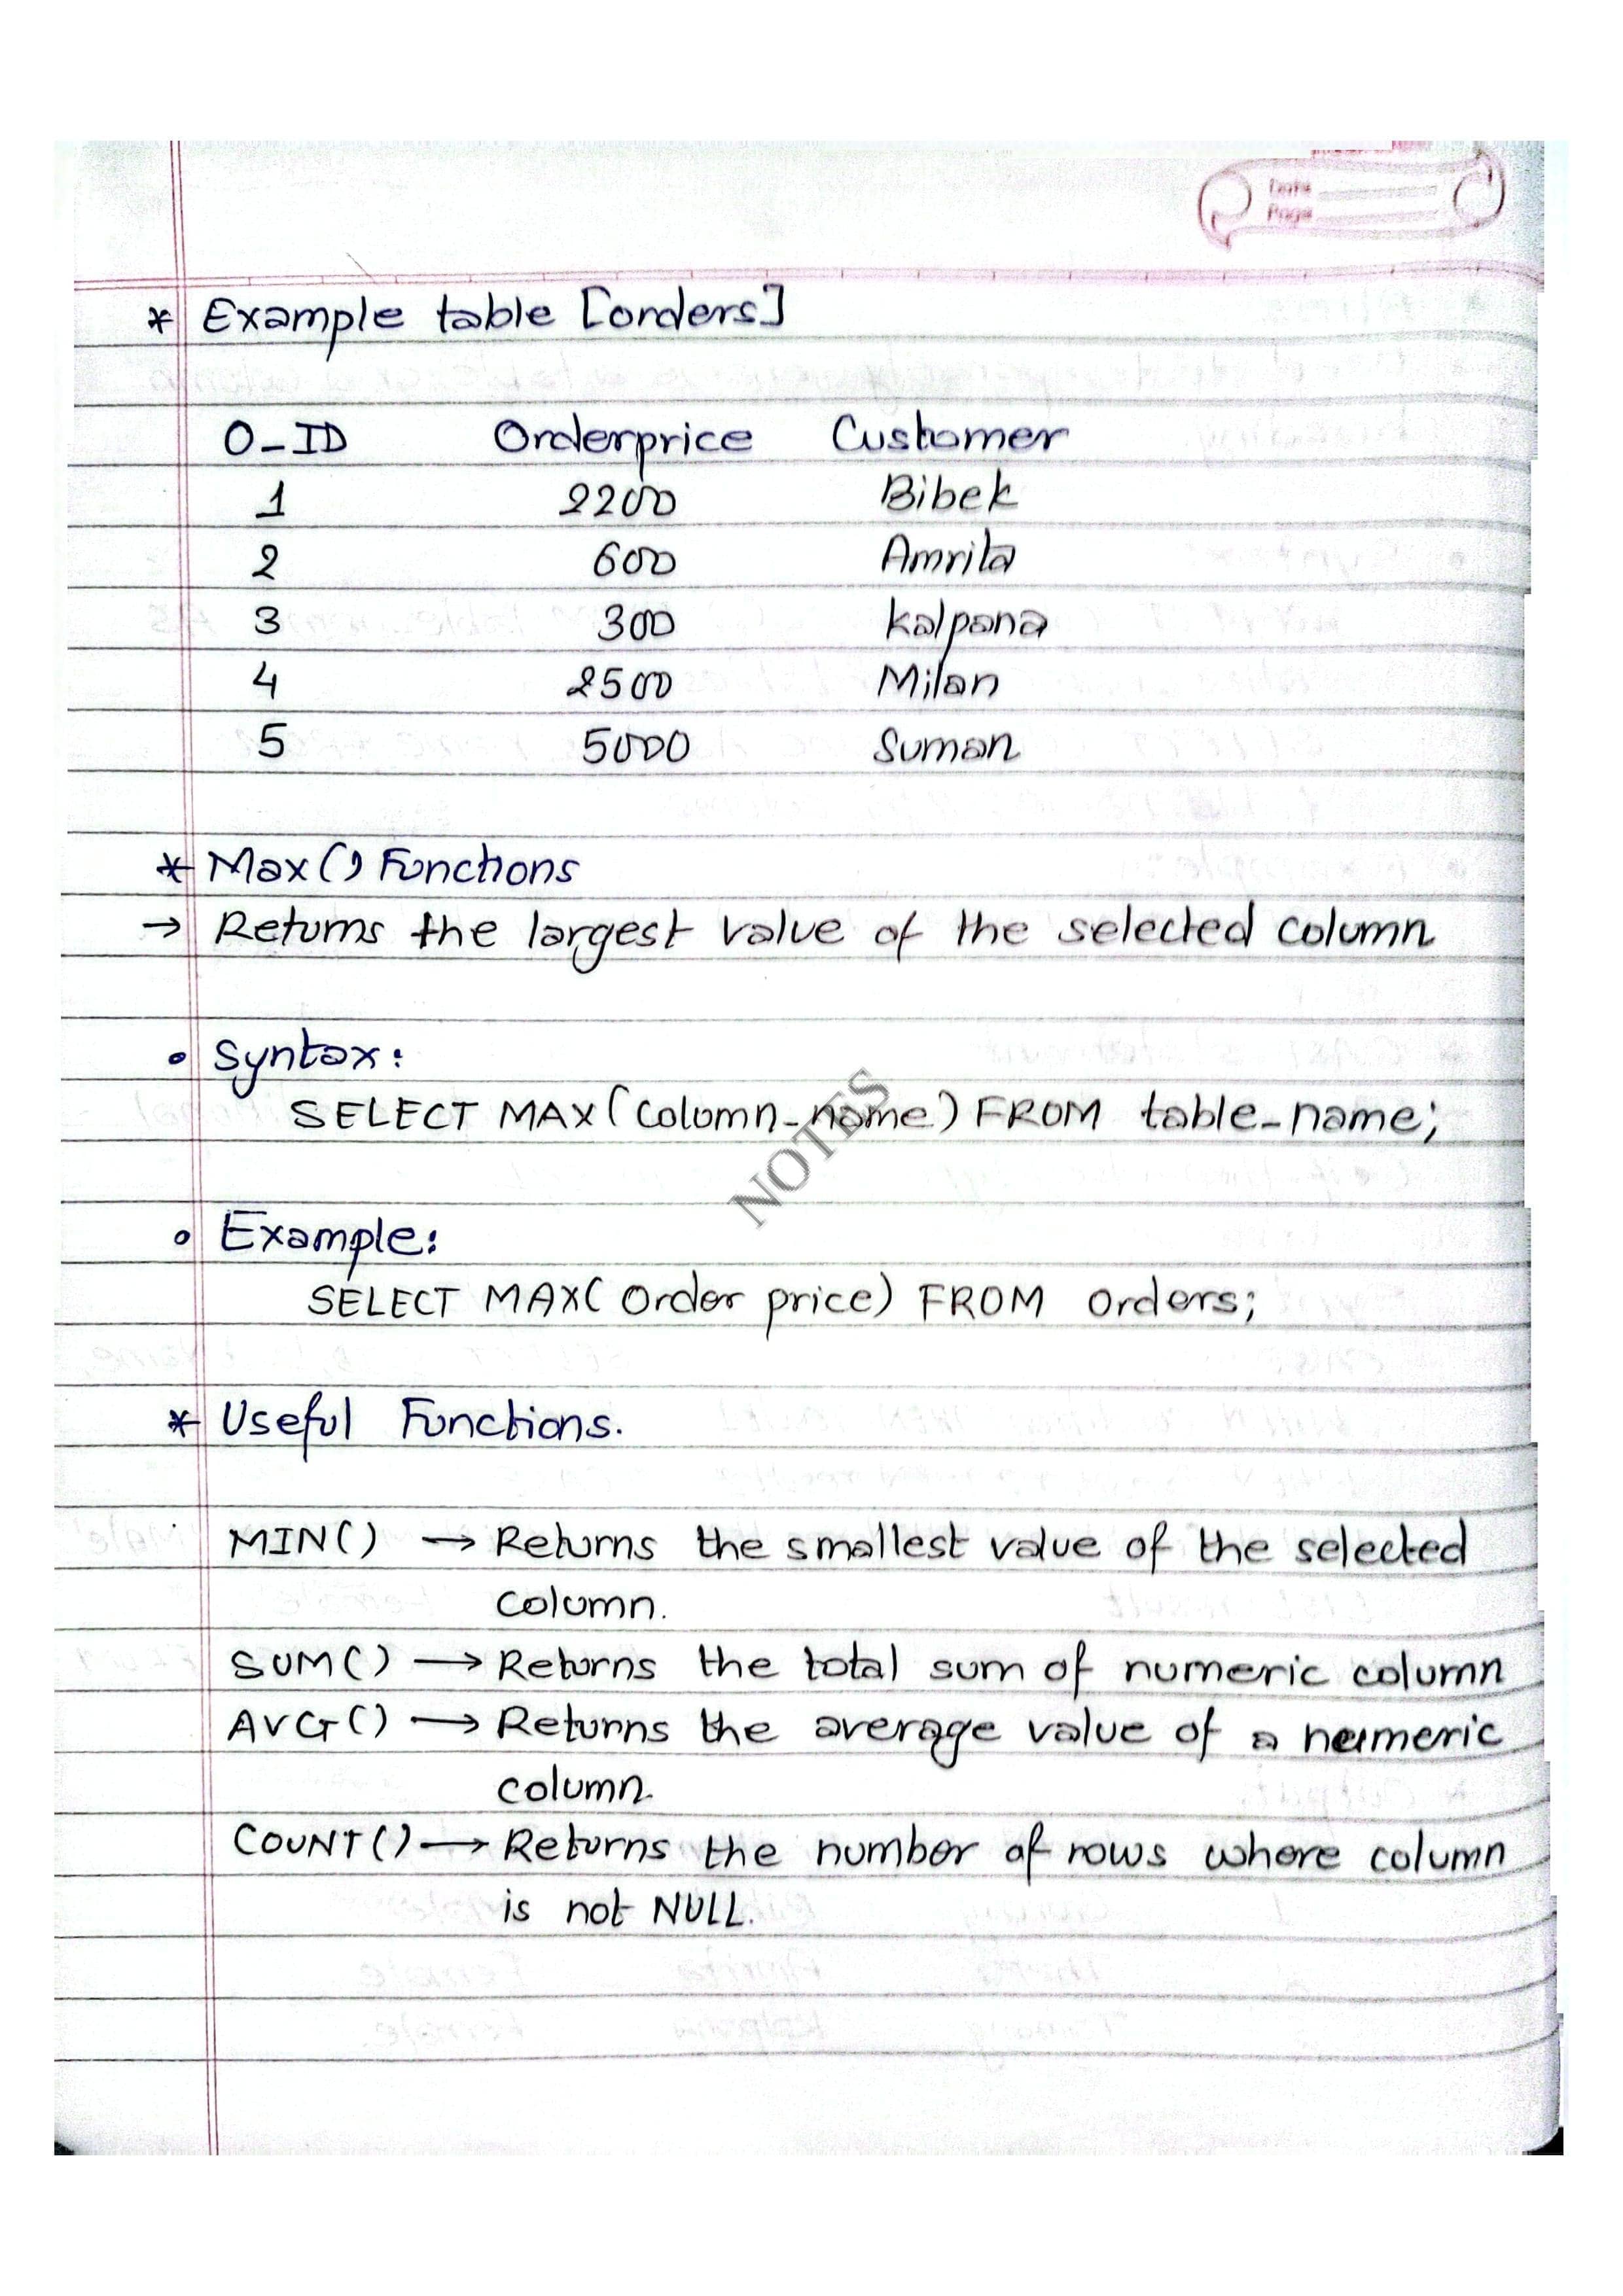 Date
Page
* Example table [orders]
O_ID Orderprice Customer
1 2200 Bibek
2 600 Amrita
3 300 kalpana
4 2500 Milan
5 5000 Suman
* Max() Functions
→ Returns the largest value of the selected column
• Syntax:
SELECT MAX(column_name) FROM table_name;
NOTES
• Example:
SELECT MAX(Order price) FROM orders;
* Useful Functions.
MIN() → Returns the smallest value of the selected
column.
SUM() → Returns the total sum of numeric column
AVG() → Returns the average value of a numeric
column.
COUNT() → Returns the number of rows where column
is not NULL.